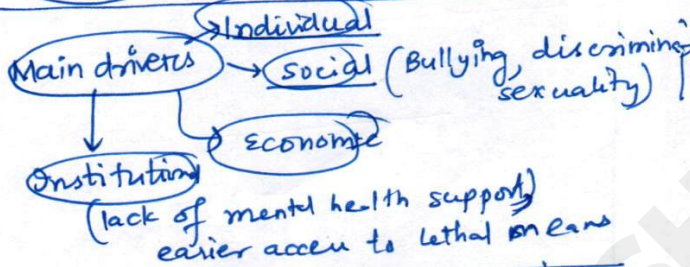 Individual
Main drivers
Social (Bullying, discrimina
sexuality)
Economic
Institution
(lack of mental health support,
easier access to lethal means